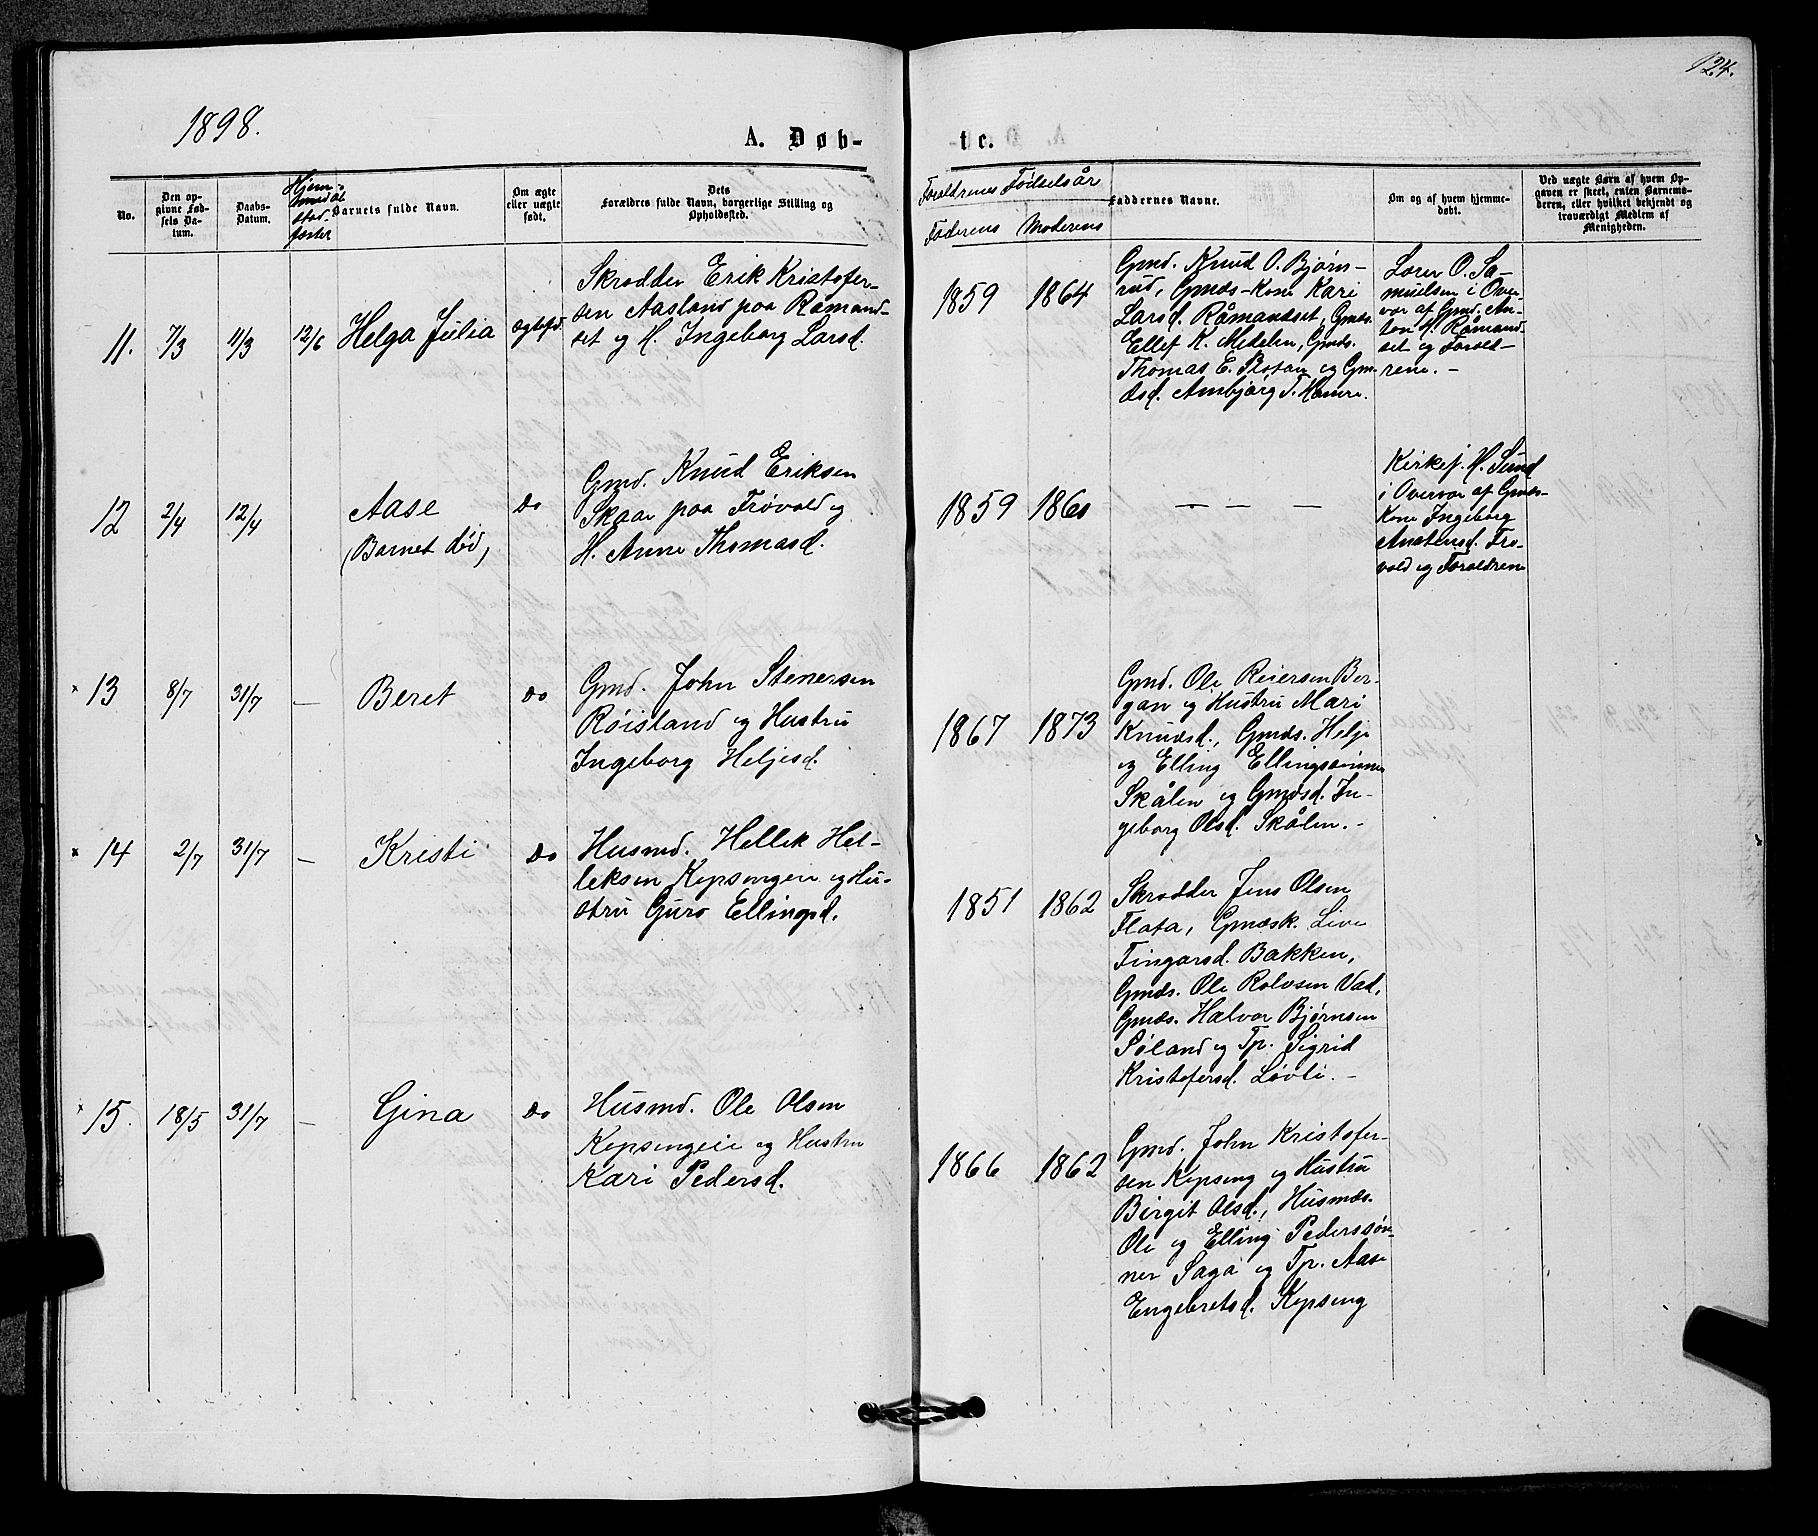 124.
1898.
A. Døb-
te.
No.
Den op-
givne Fød-
sels Da-
tum.
Daabs-
Datum.
Hjem-
medøbt
stad-
fæstet
Barnets fulde Navn.
Om ægte
eller uægte
født.
Dets
Forældres fulde Navn, borgerlige Stilling og
Opholdssted.
Forældrenes Fødselsår
Faderens Moderens
Faddernes Navne.
Om og af hvem hjemme-
døbt.
Ved uægte Børn af hvem Op-
gaven er skeet, enten Barnemo-
deren, eller hvilket bekjendt og
troværdigt Medlem af
Menigheden.
11. 7/3 11/3 12/6 Helga Julia ægtefd.
Skrædder Erik Kristofer-
sen Aasland paa Råmand-
set og H. Ingeborg Larsd.
1859 1864
Gmd. Knud O. Bjørn-
rud, Gmds-Kone Kari
Larsd. Råmandset, Gmds.
Ellef K. Medelen, Gmds.
Thomas E. Plotan og Gm-
dsd. Ambjørg T. Hamre.
Lærer O. Sa-
muelsen i Over-
vær af Gmd. An-
ton H. Råmand-
set og Foræld-
rene. -
12 2/4 12/4
Aase
(Barnet død)
Do
Gmd. Knud Eriksen
Skaar paa Frøvold og
H. Anne Thomasd.
1859 1860
- - -
Kirkesj. H. Sund
i Overvær af Gmds-
Kone Ingeborg
Anstensd. Frø-
vold og Forældrene
× 13 8/7 31/7 - Beret Do
Gmd. John Stenersen
Røisland og Hustru
Ingeborg Heljesd.
1867 1873
Gmd. Ole Reiersen Ber-
gan og Hustru Mari
Knudsd., Gmds. Helje
og Elling Ellingsønner
Skålen og Gmdsd. In-
geborg Olsd. Skålen. -
× 14 2/7 31/7 - Kristi Do
Husmd. Hellek Hel-
leksen Kopsengeie og Hu-
stru Guro Ellingsd.
1851 1862
Skrædder Jens Olsen
Flata, Gmdsk. Live
Fingarsd. Bakken,
Gmds. Ole Rolvsen Vad,
Gmds. Halvor Bjørnsen
Søland og Tp. Sigrid
Kristofersd. Løvli. -
× 15. 18/5 31/7 - Gina Do
Husmd. Ole Olsen
Kopsengeie og Hustru
Kari Pedersd.
1866 1862
Gmd. John Kristofer-
sen Kopseng og Hustru
Birgit Olsd., Husmds.
Ole og Elling Pederssøn-
ner Saga og Tp. Aase
Engebretsd. Kopseng